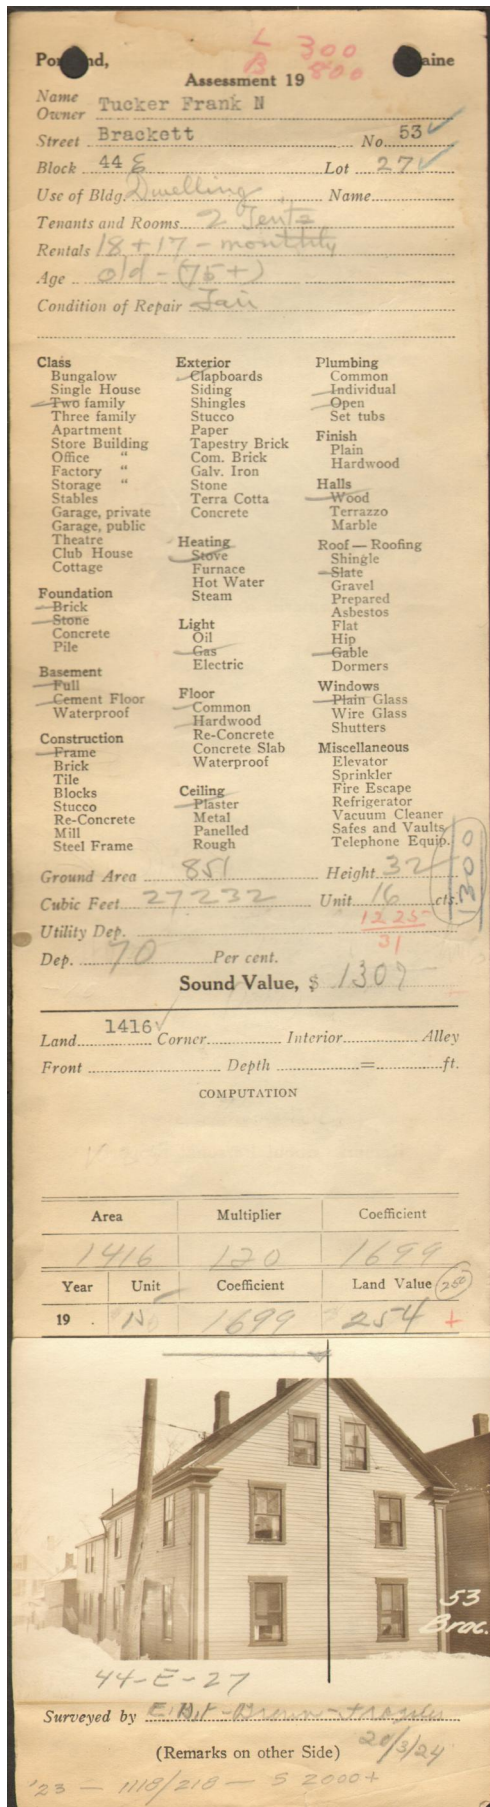 L 300
B 800
Portland, Maine
Assessment 19
Name
Owner Tucker Frank N
Street Brackett No. 53
Block 44 E Lot 27
Use of Bldg. Dwelling Name
Tenants and Rooms 2 Tents
Rentals 18 + 17 - monthly
Age old - (75+)
Condition of Repair Fair
Class
Bungalow
Single House
Two family
Three family
Apartment
Store Building
Office "
Factory "
Storage "
Stables
Garage, private
Garage, public
Theatre
Club House
Cottage
Foundation
Brick
Stone
Concrete
Pile
Basement
Full
Cement Floor
Waterproof
Construction
Frame
Brick
Tile
Blocks
Stucco
Re-Concrete
Mill
Steel Frame
Exterior
Clapboards
Siding
Shingles
Stucco
Paper
Tapestry Brick
Com. Brick
Galv. Iron
Stone
Terra Cotta
Concrete
Heating
Stove
Furnace
Hot Water
Steam
Light
Oil
Gas
Electric
Floor
Common
Hardwood
Re-Concrete
Concrete Slab
Waterproof
Ceiling
Plaster
Metal
Panelled
Rough
Plumbing
Common
Individual
Open
Set tubs
Finish
Plain
Hardwood
Halls
Wood
Terrazzo
Marble
Roof — Roofing
Shingle
Slate
Gravel
Prepared
Asbestos
Flat
Hip
Gable
Dormers
Windows
Plain Glass
Wire Glass
Shutters
Miscellaneous
Elevator
Sprinkler
Fire Escape
Refrigerator
Vacuum Cleaner
Safes and Vaults
Telephone Equip.
1300
Ground Area 851 Height 32
Cubic Feet 27232 Unit 16 cts.
1225
Utility Dep. 31
Dep. 70 Per cent.
Sound Value, $ 1307
Land 1416 Corner Interior Alley
Front Depth = ft.
COMPUTATION
Area Multiplier Coefficient
1416 120 1699
Year Unit Coefficient Land Value 250
19 1699 254 +
53
Brac.
44-E-27
Surveyed by
20/3/24
(Remarks on other Side)
'23 — 1118/218 — S 2000+